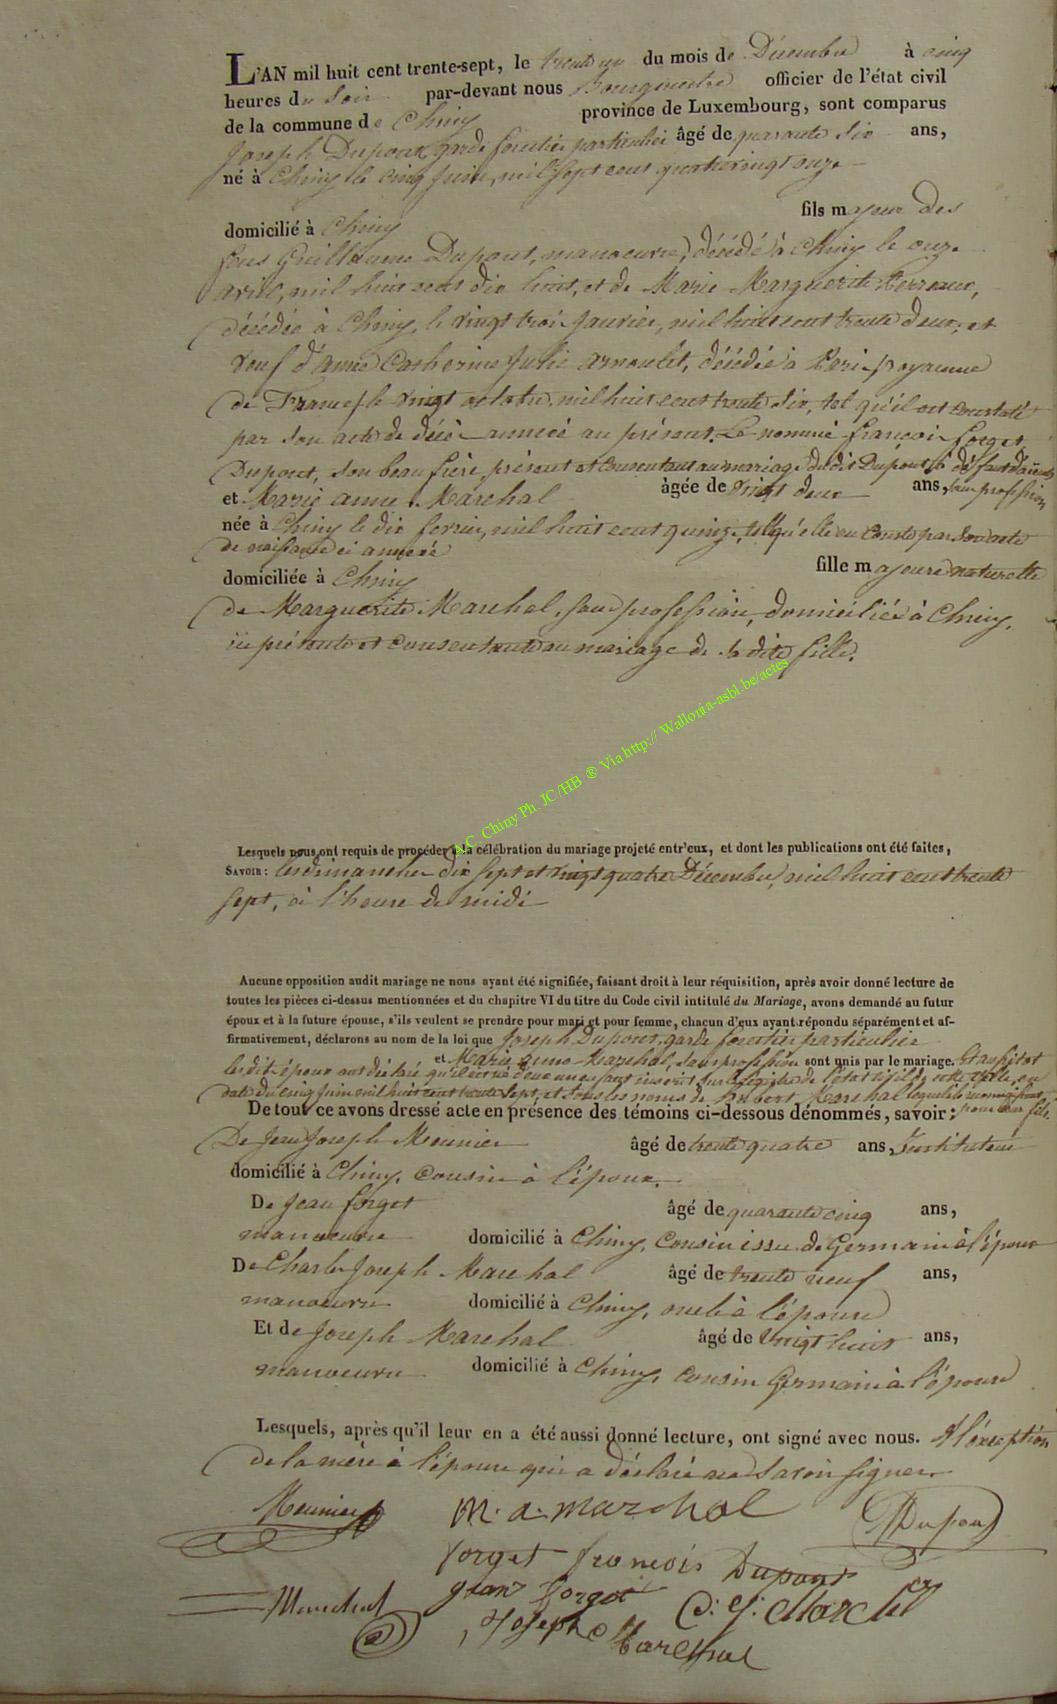 L'AN mil huit cent trente-sept, le trente un du mois de Décembre à cinq
heures du soir par-devant nous Bourgmestre officier de l'état civil
de la commune de Chiny province de Luxembourg, sont comparus
Joseph Dupont, garde forestier particulier âgé de quarante six ans,
né à Chiny le cinq Juin, mil sept cent quatrevingt onze
domicilié à Chiny fils majeur des
feus Guillaume Dupont, manoeuvre, décédé à Chiny le onze
avril, mil huit cent dix huit, et de Marie Marguerite Perreaux,
décédée à Chiny, le vingt trois Janvier, mil huit cent trente deux; et
veuf d'anne Catherine Julie arnoulet, décédée à Paris, royaume
de France, le vingt octobre, mil huit cent trente six, tel qu'il est constaté
par son acte de décès annexé au présent. Le nommé françois forget
Dupont, son beau frère, présent et consentant au mariage du dit Dupont, à défaut d'aïeuls
et Marie anne Marchal âgée de vingt deux ans, sans profession
née à Chiny le dix fevrier, mil huit cent quinze, tel qu'elle en conste par son acte
de naissance ci annexé
domiciliée à Chiny fille majeure naturelle
de Marguerite Marchal, sans profession, domiciliée à Chiny,
ici présente et consentante au mariage de sa dite fille.
A.C. Chiny Ph. JC/HB ® Via http:// Wallonia-asbl.be/actes
Lesquels nous ont requis de procéder à la célébration du mariage projeté entr'eux, et dont les publications ont été faites,
SAVOIR: les dimanches dix sept et vingt quatre Décembre, mil huit cent trente
sept, à l'heure de midi
Aucune opposition audit mariage ne nous ayant été signifiée, faisant droit à leur réquisition, après avoir donné lecture de
toutes les pièces ci-dessus mentionnées et du chapitre VI du titre du Code civil intitulé du Mariage, avons demandé au futur
époux et à la future épouse, s'ils veulent se prendre pour mari et pour femme, chacun d'eux ayant répondu séparément et af-
firmativement, déclarons au nom de la loi que Joseph Dupont, garde forestier particulier
et Marie anne Marchal, sans profession sont unis par le mariage. Et aussitôt
les dits époux ont déclaré qu'il est né d'eux un enfant inscrit sur le registre de l'état civil de notre ville, en
date du cinq Juin mil huit cent trente sept, et sous les noms de hubert Marchal lequel ils reconnaissent
De tout ce avons dressé acte en présence des témoins ci-dessous dénommés, savoir: pour leur fils.
De Jean Joseph Meunier âgé de trente quatre ans, Instituteur
domicilié à Chiny, cousin à l'époux.
De Jean forget âgé de quarante cinq ans,
manoeuvre domicilié à Chiny, cousin issu de Germain à l'époux
De Charles Joseph Marchal âgé de trente neuf ans,
manoeuvre domicilié à Chiny, oncle à l'épouse
Et de Joseph Marchal âgé de vingt huit ans,
manoeuvre domicilié à Chiny, cousin Germain à l'épouse
Lesquels, après qu'il leur en a été aussi donné lecture, ont signé avec nous. A l'exception
de la mère à l'épouse qui a déclaré ne savoir signer
Meunier M. a. marchal Dupont
forget francois Dupont
Marchal Jean forget C. J. Marchal
Joseph Marchal